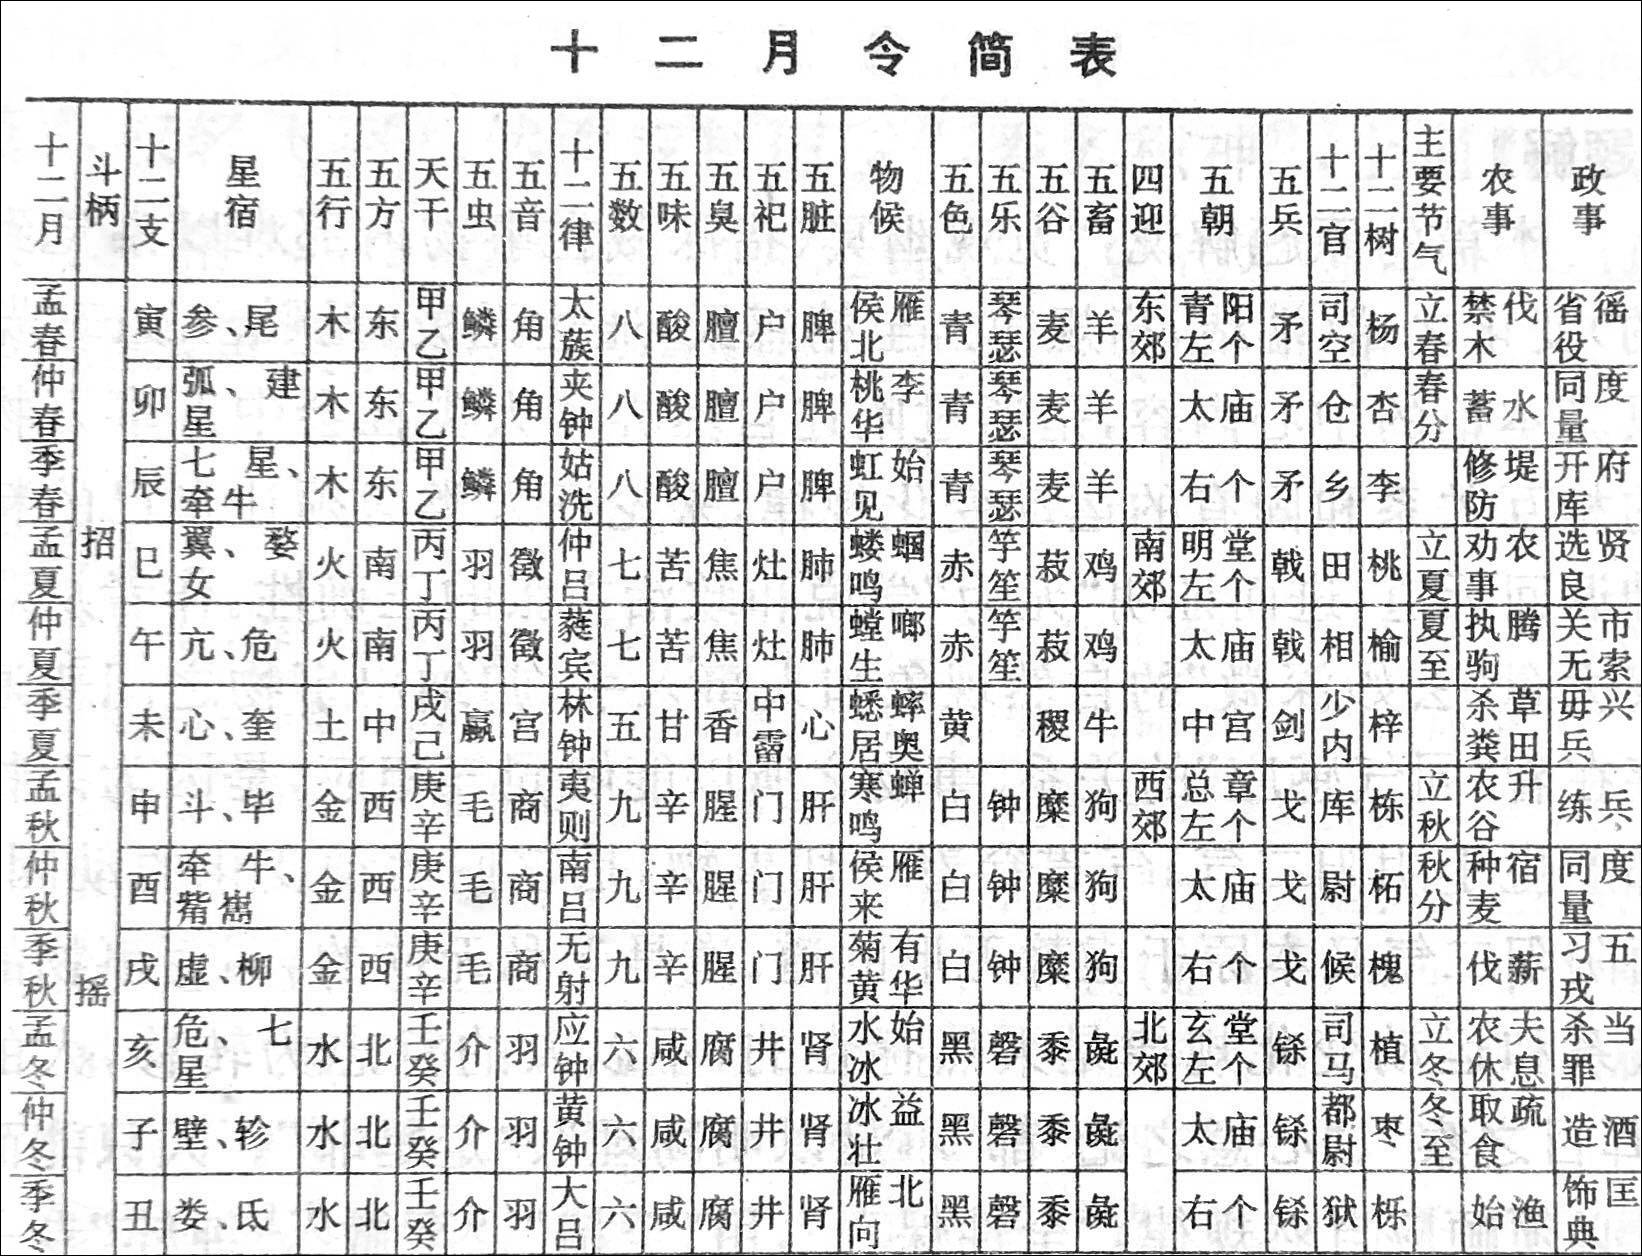 十二月令简表
十二月 斗柄 十二支 星宿 五行 五方 天干 五虫 五音 十二律 五数 五味 五臭 五祀 五脏 物候 五色 五乐 五谷 五畜 四迎 五朝 五兵 十二官 十二树 主要节气 农事 政事
孟春 招摇 寅 参、尾 木 东 甲乙 鳞 角 太蔟 八 酸 膻 户 脾 侯雁北 青 琴瑟 麦 羊 东郊 青阳左个 矛 司空 杨 立春 禁伐木 省徭役
仲春 卯 弧、建星 木 东 甲乙 鳞 角 夹钟 八 酸 膻 户 脾 桃李华 青 琴瑟 麦 羊 太庙 矛 仓 杏 春分 蓄水 同度量
季春 辰 七星、牵牛 木 东 甲乙 鳞 角 姑洗 八 酸 膻 户 脾 虹始见 青 琴瑟 麦 羊 右个 矛 乡 李 修堤防 开府库
孟夏 巳 翼、婺女 火 南 丙丁 羽 徵 仲吕 七 苦 焦 灶 肺 蝼蝈鸣 赤 竽笙 菽 鸡 南郊 明堂左个 戟 田 桃 立夏 劝农事 选贤良
仲夏 午 亢、危 火 南 丙丁 羽 徵 蕤宾 七 苦 焦 灶 肺 螳螂生 赤 竽笙 菽 鸡 太庙 戟 相 榆 夏至 执腾驹 关市无索
季夏 未 心、奎 土 中 戊己 蠃 宫 林钟 五 甘 香 中霤 心 蟋蟀居奥 黄 稷 牛 中宫 剑 少内 梓 杀草粪田 毋兴兵
孟秋 申 斗、毕 金 西 庚辛 毛 商 夷则 九 辛 腥 门 肝 寒蝉鸣 白 钟 糜 狗 西郊 总章左个 戈 库 栋 立秋 农升谷 练兵
仲秋 酉 牵牛、觜嶲 金 西 庚辛 毛 商 南吕 九 辛 腥 门 肝 侯雁来 白 钟 糜 狗 太庙 戈 尉 柘 秋分 种宿麦 同度量
季秋 戌 虚、柳 金 西 庚辛 毛 商 无射 九 辛 腥 门 肝 菊有黄华 白 钟 糜 狗 右个 戈 候 槐 伐薪 习五戎
孟冬 亥 危、七星 水 北 壬癸 介 羽 应钟 六 咸 腐 井 肾 水始冰 黑 磬 黍 彘 北郊 玄堂左个 铩 司马 植 立冬 农夫休息 杀当罪
仲冬 子 壁、轸 水 北 壬癸 介 羽 黄钟 六 咸 腐 井 肾 冰益壮 黑 磬 黍 彘 太庙 铩 都尉 枣 冬至 取疏食 造酒
季冬 丑 娄、氐 水 北 壬癸 介 羽 大吕 六 咸 腐 井 肾 雁北向 黑 磬 黍 彘 右个 铩 狱 栎 始渔 饰国典